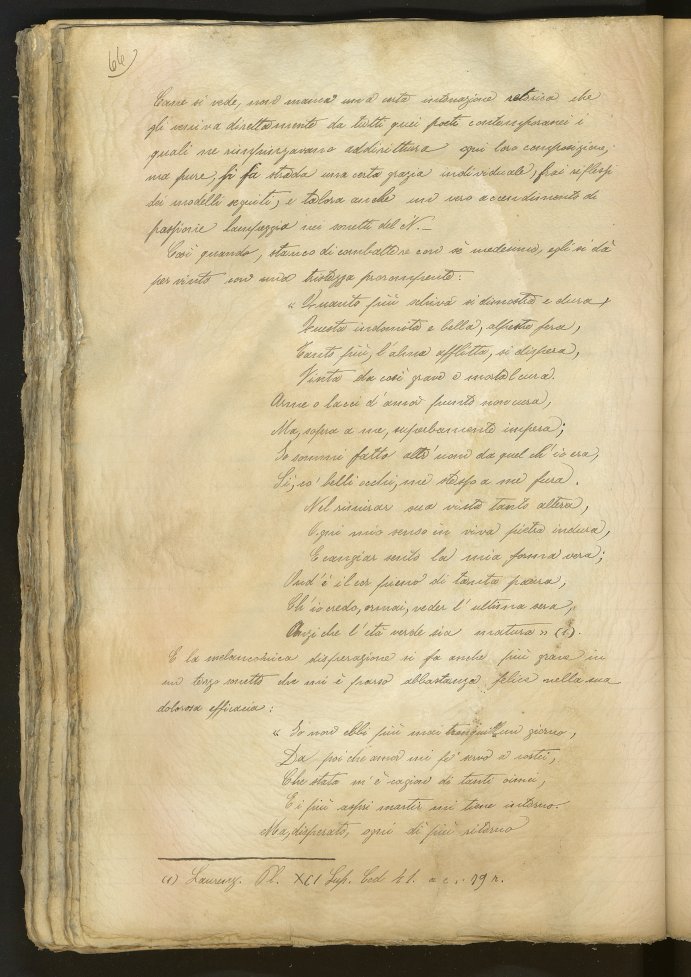 66
Come si vede, non manca una certa intonazione retorica che
gli veniva direttamente da tutti quei poeti contemporanei i
quali ne rimpinzavano addirittura ogni loro composizione;
ma pure, si fa strada una certa grazia individuale, fra i riflessi
dei modelli seguiti, e talora anche un vero accendimento di
passione lampeggia nei sonetti del N. _
Così quando, stanco di combattere con sè medesimo, egli si dà
per vinto con una tristezza prorompente:
« Quanto più schiva si dimostra e dura,
Questa indomita e bella, alpestre fera,
Tanto più, l'alma afflitta, si dispera,
Vinta da così grave e mortal cura.
Arme o lacci d'amor punto non cura,
Ma, sopra a me, superbamente impera;
Io sommi fatto altr'uom da quel ch'io era,
Sì, co' belli occhi, me stesso a me fura.
Nel rimirar sua vista tanto altera,
Ogni mio senso in viva pietra indura,
E cangiar sento la mia forma vera;
Ond'è il cor pieno di tanta paura,
Ch'io credo, ormai, veder l'ultima sera,
Anzi che l'età verde sia matura » (1).
E la melanconica disperazione si fa anche più grave in
un terzo sonetto che mi è parso abbastanza felice nella sua
dolorosa efficacia:
« Io non ebbi più mai tranquillo un giorno,
Da poi che amor mi fe' servo a costei,
Che stata m'è cagion di tanti omei,
E i più aspri martir mi tiene intorno.
Ma, disperato, ogni dì più ritorno
(1) Laurenz. Pl. XCI Sup. Cod. 41. a c. 19 r.